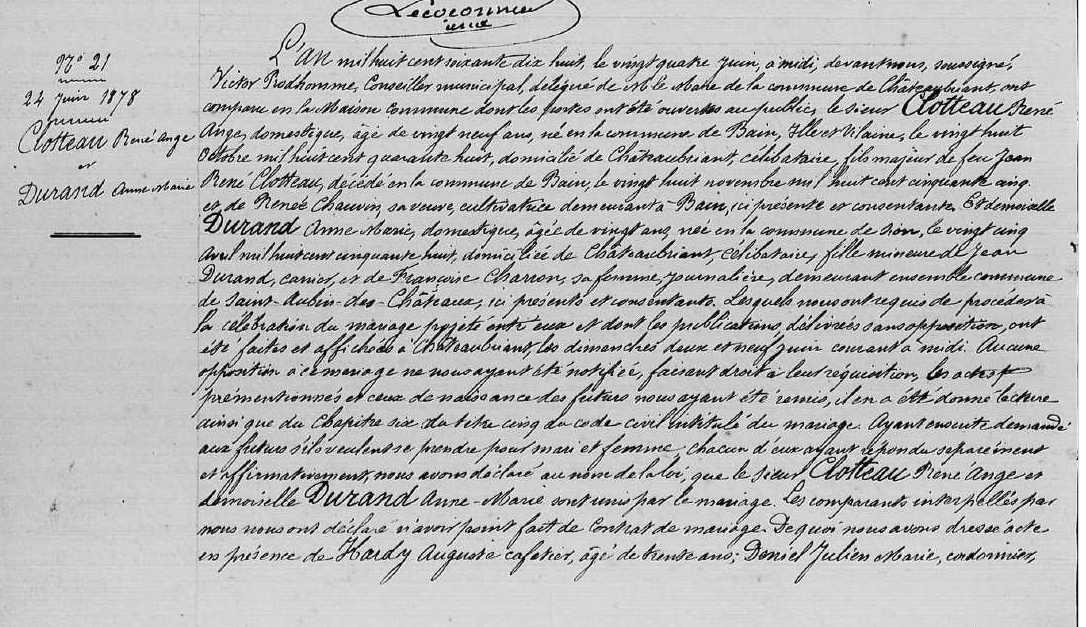 Lecoconnier
N° 21
24 Juin 1878
Clotteau René Ange
et
Durand Anne Marie
L'An mil huit cent soixante dix huit, le vingt quatre Juin, à midi, devant nous, soussigné,
Victor Prodhomme, Conseiller municipal, délégué de Mr le Maire de la commune de Châteaubriant, ont
comparu en la Maison Commune dont les portes ont été ouvertes au public, le sieur Clotteau René
Ange, domestique, âgé de vingt neuf ans, né en la commune de Bain, Ille et Vilaine, le vingt huit
Octobre mil huit cent quarante huit, domicilié de Châteaubriant, célibataire, fils majeur de feu Jean
René Clotteau, décédé en la commune de Bain, le vingt huit novembre mil huit cent cinquante cinq
et de Renée Chauvin, sa veuve, cultivatrice demeurant à Bain, ici présente et consentante. Et demoiselle
Durand Anne Marie, domestique, âgée de vingt ans, née en la commune de Sion, le vingt cinq
avril mil huit cent cinquante huit, domiciliée de Châteaubriant, célibataire, fille mineure de Jean
Durand, carrier, et de Françoise Charron, sa femme, journalière, demeurant ensemble commune
de Saint-Aubin-des-Châteaux, ici présents et consentants. Lesquels nous ont requis de procéder à
la célébration du mariage projeté entre eux et dont les publications, délivrées sans opposition, ont
été faites et affichées à Châteaubriant, les dimanches deux et neuf juin courant à midi. Aucune
opposition à ce mariage ne nous ayant été notifiée, faisant droit à leur réquisition, les actes
prémentionnés et ceux de naissance des futurs nous ayant été remis, il en a été donné lecture
ainsi que du Chapitre six du titre cinq du code civil intitulé du mariage. Ayant ensuite demandé
aux futurs s'ils veulent se prendre pour mari et femme chacun d'eux ayant répondu séparément
et affirmativement, nous avons déclaré au nom de la loi, que le sieur Clotteau René Ange et
demoiselle Durand Anne-Marie sont unis par le mariage. Les comparants interpellés par
nous nous ont déclaré n'avoir point fait de Contrat de mariage. De quoi nous avons dressé acte
en présence de Hardy Auguste cafetier, âgé de trente ans; Deniel Julien Marie, cordonnier,